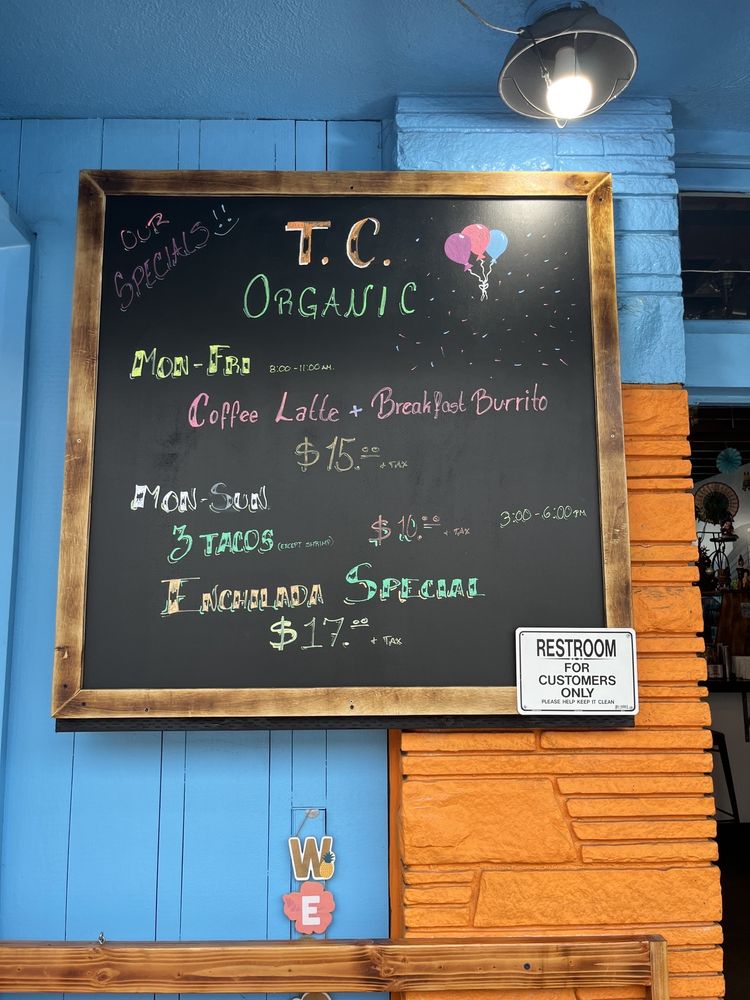 OUR
SPECIALS!!
T. C.
ORGANIC
MON-FRI 8:00-11:00 AM.
Coffee Latte + Breakfast Burrito
$15.00 + TAX
MON-SUN
3:00-6:00 PM
3 TACOS (EXCEPT SHRIMP) $10.00 + TAX
ENCHILADA SPECIAL
$17.00 + TAX
RESTROOM
FOR
CUSTOMERS
ONLY
PLEASE HELP KEEP IT CLEAN
W
E